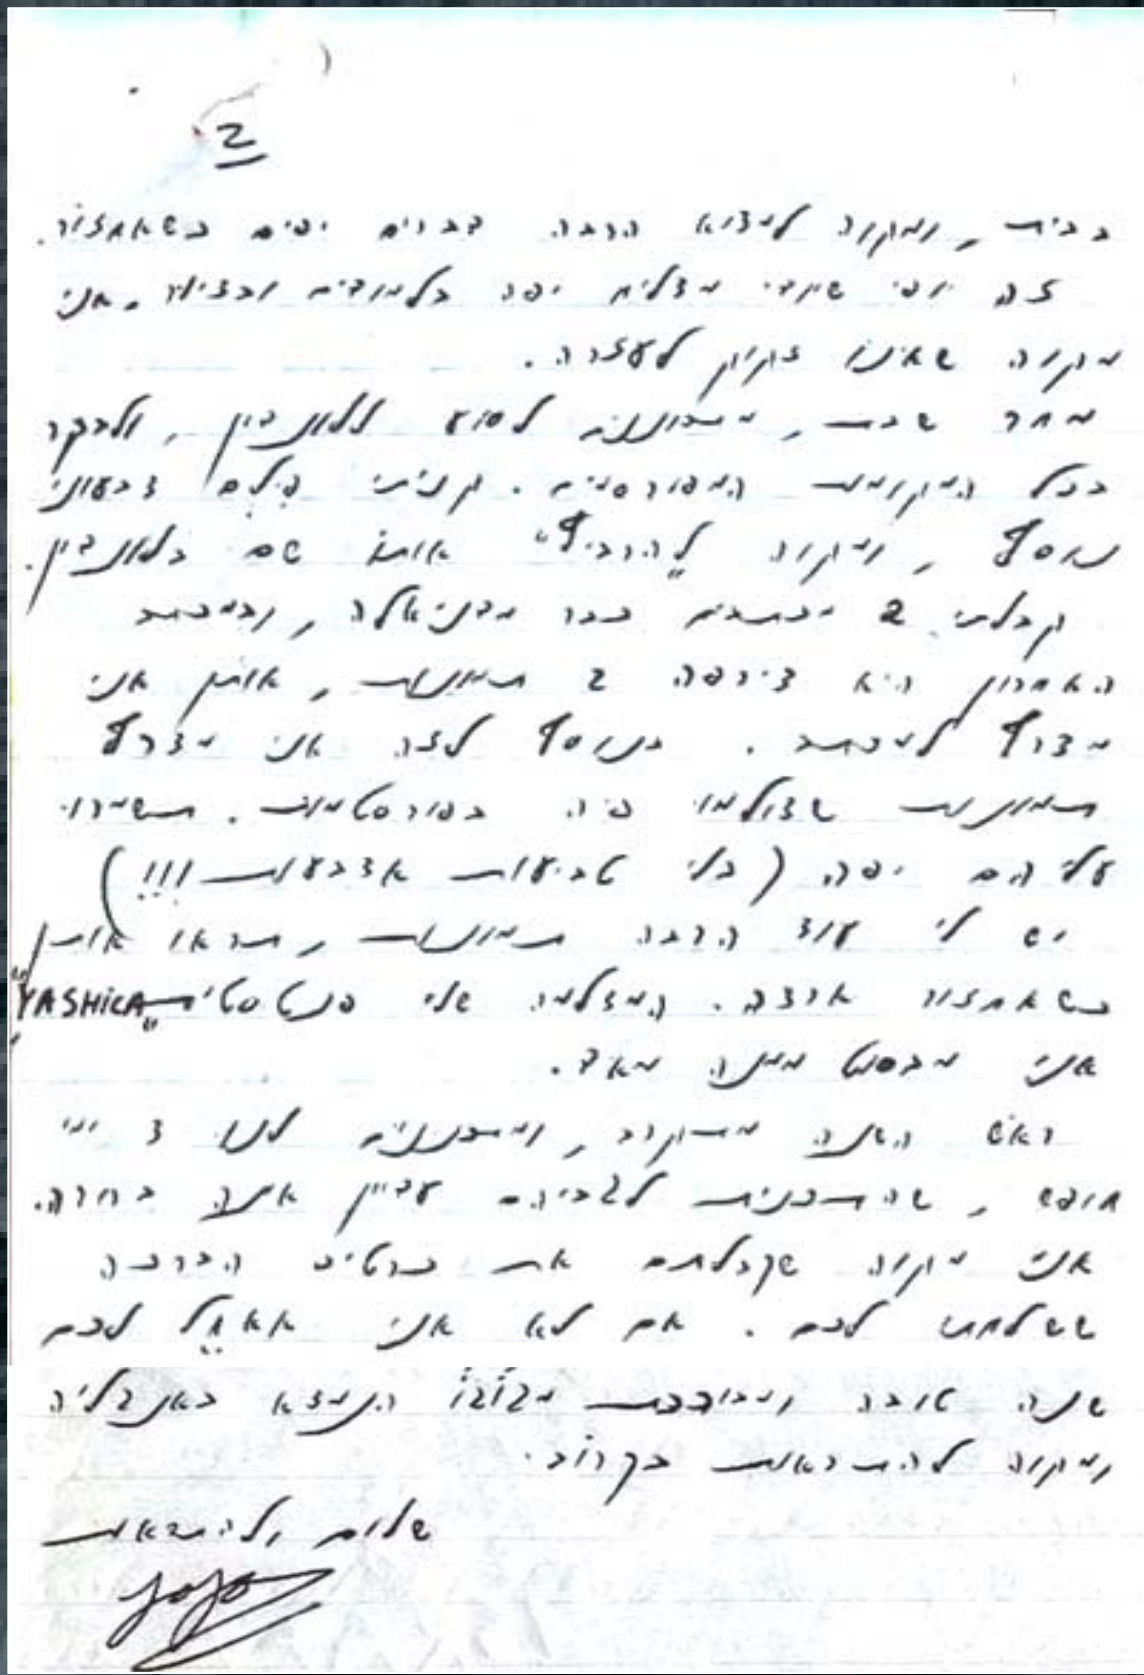 2
בבית, ומקוה למצוא הרבה דברים יפים כשאחזור.
זה יופי שיודי מצליח יפה בלימודים ובציור, אני
מקוה שאינו זקוק לעזרה.
מחר שבת, מתכוננים לנסוע ללונדון, ולבקר
בכל המקומות המפורסמים. קניתי פילם צבעוני
נוסף, ומקוה "להרביץ" אותו שם בלונדון.
קבלתי 2 מכתבים כבר מדניאלה, ובמכתב
האחרון היא צירפה 2 תמונות, אותן אני
מצרף למכתב. בנוסף לזה אני מצרף
תמונות שצולמו פה בפורטסמות. תשמרו
עליהם יפה (בלי טביעות אצבעות!!!)
יש לי עוד הרבה תמונות, תראו אותן
כשאחזור ארצה. המצלמה שלי פנטסטית "YASHICA"
אני מבסוט ממנה מאד.
ראש השנה מתקרב, ומתכננים לנו 3 ימי
חופש, שהתכניות לגביהם עדיין אינה ברורה.
אני מקוה שקבלתם את כרטיס הברכה
ששלחתי לכם. אם לא אני אאחל לכם
שנה טובה ומבורכת מז'וז'ו הנמצא באנגליה
ומקוה להתראות בקרוב.
שלום ולהתראות
JoJo